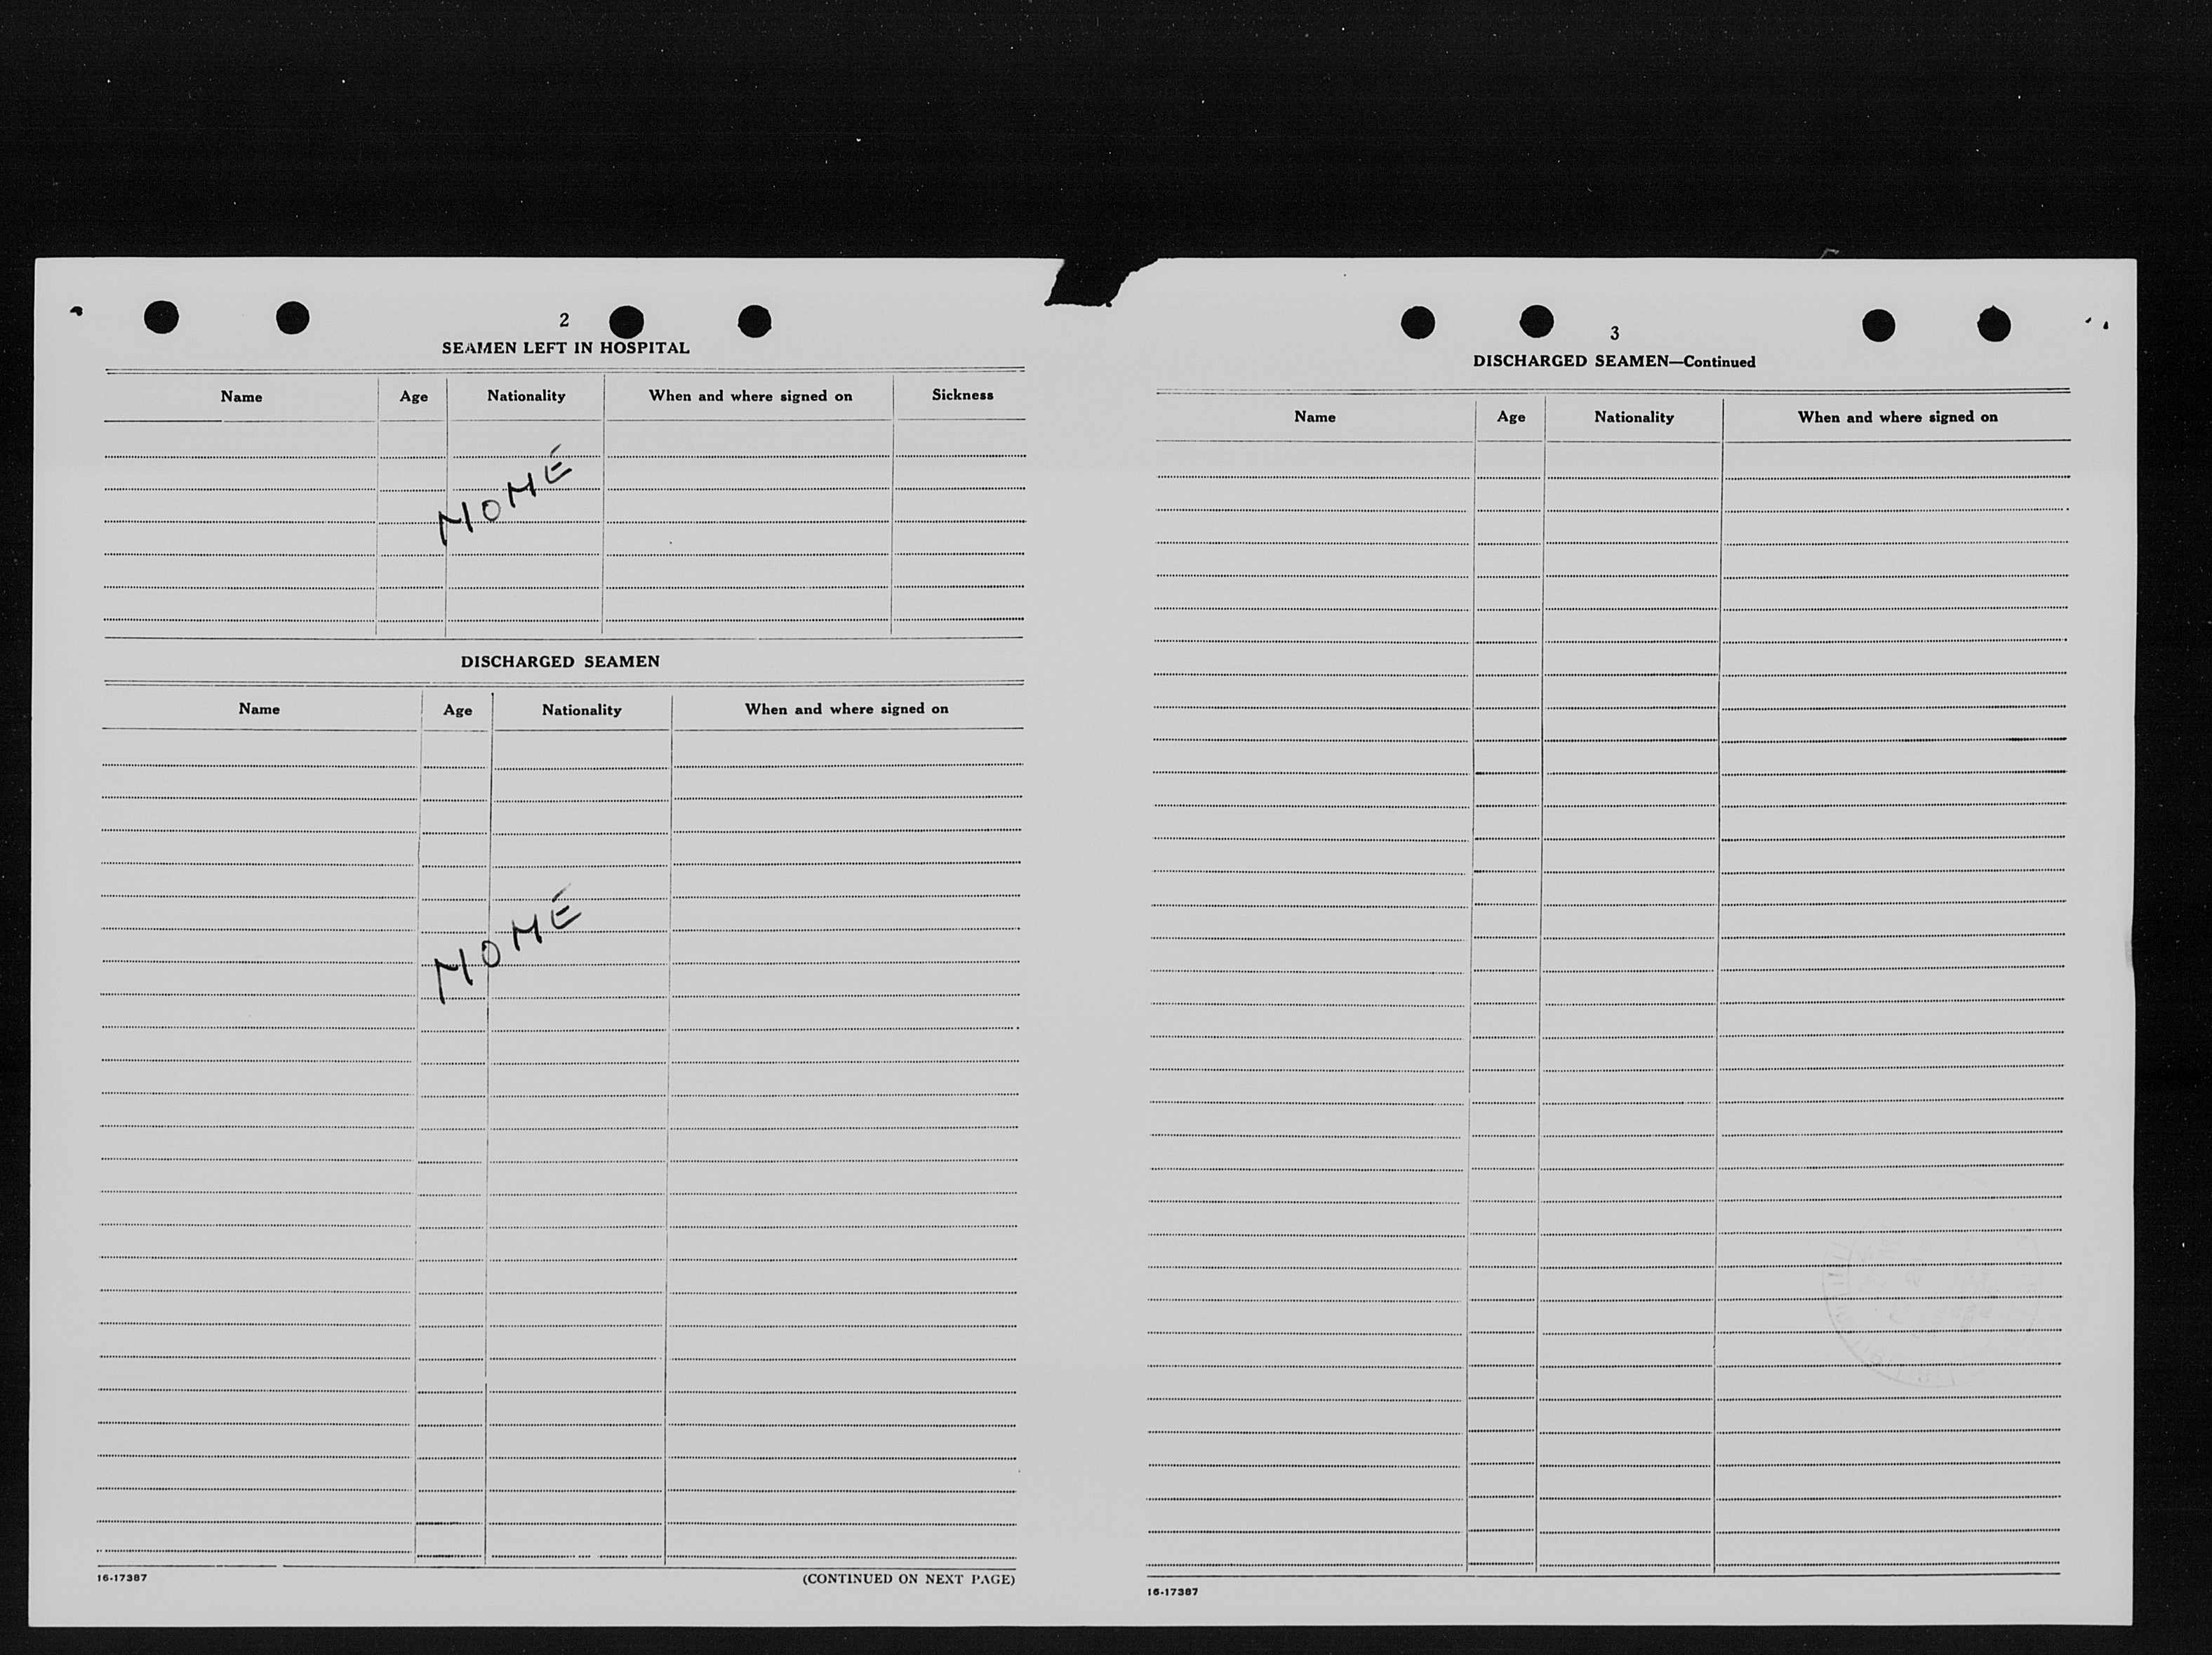 2
SEAMEN LEFT IN HOSPITAL
Name Age Nationality When and where signed on Sickness
NONE
DISCHARGED SEAMEN
Name Age Nationality When and where signed on
NONE
16-17387 (CONTINUED ON NEXT PAGE)
3
DISCHARGED SEAMEN—Continued
Name Age Nationality When and where signed on
16-17387